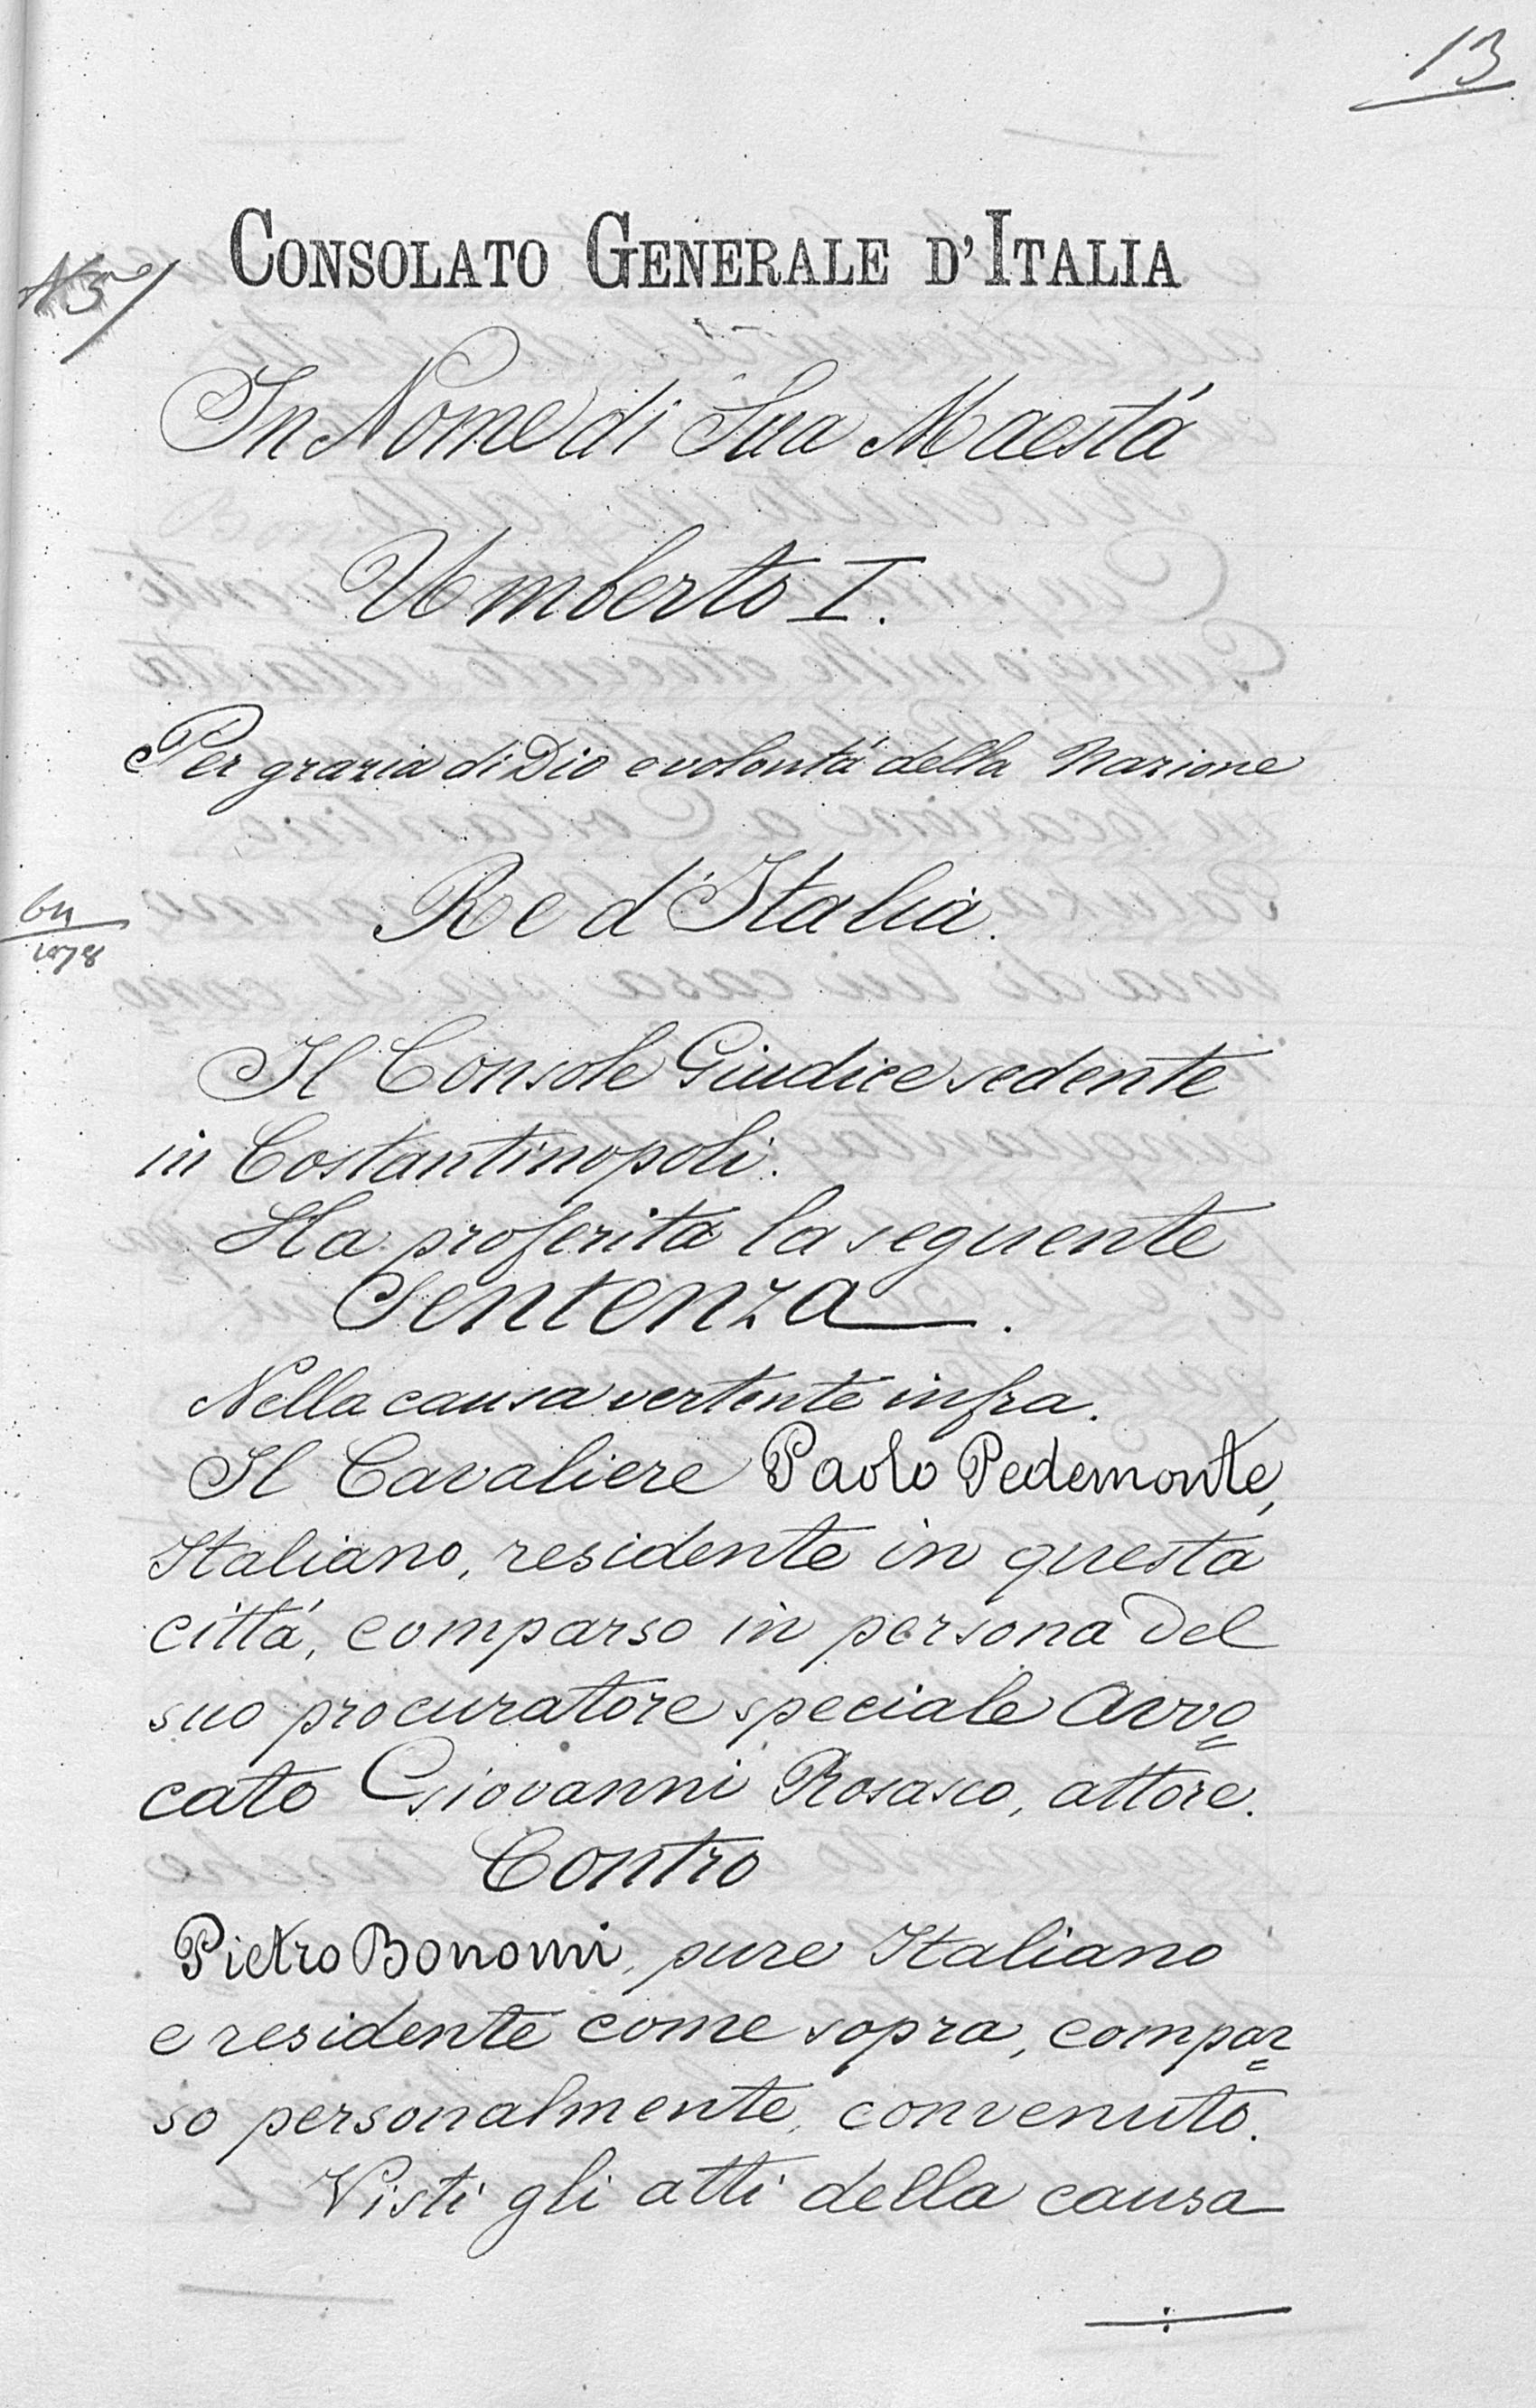 13
CONSOLATO GENERALE D'ITALIA
In Nome di Sua Maestá
Umberto I.
Per grazia di Dio e volontá della Nazione
Re d'Italia.
1878
Il Console Giudice sedente
in Costantinopoli.
Ha proferita la seguente
Sentenza.
Nella causa vertente infra.
Il Cavaliere Paolo Pedemonte,
Italiano, residente in questa
cittá, comparso in persona del
suo procuratore speciale Avvo=
cato Giovanni Rosasco, attore.
Contro
Pietro Bonomi, pure Italiano
e residente come sopra, compar=
so personalmente, convenuto.
Visti gli atti della causa